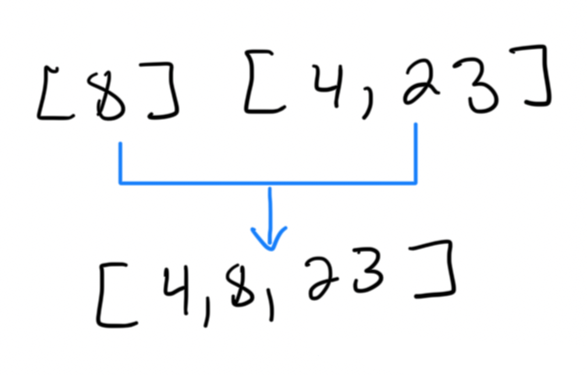 [8] [4, 23]
[4, 8, 23]